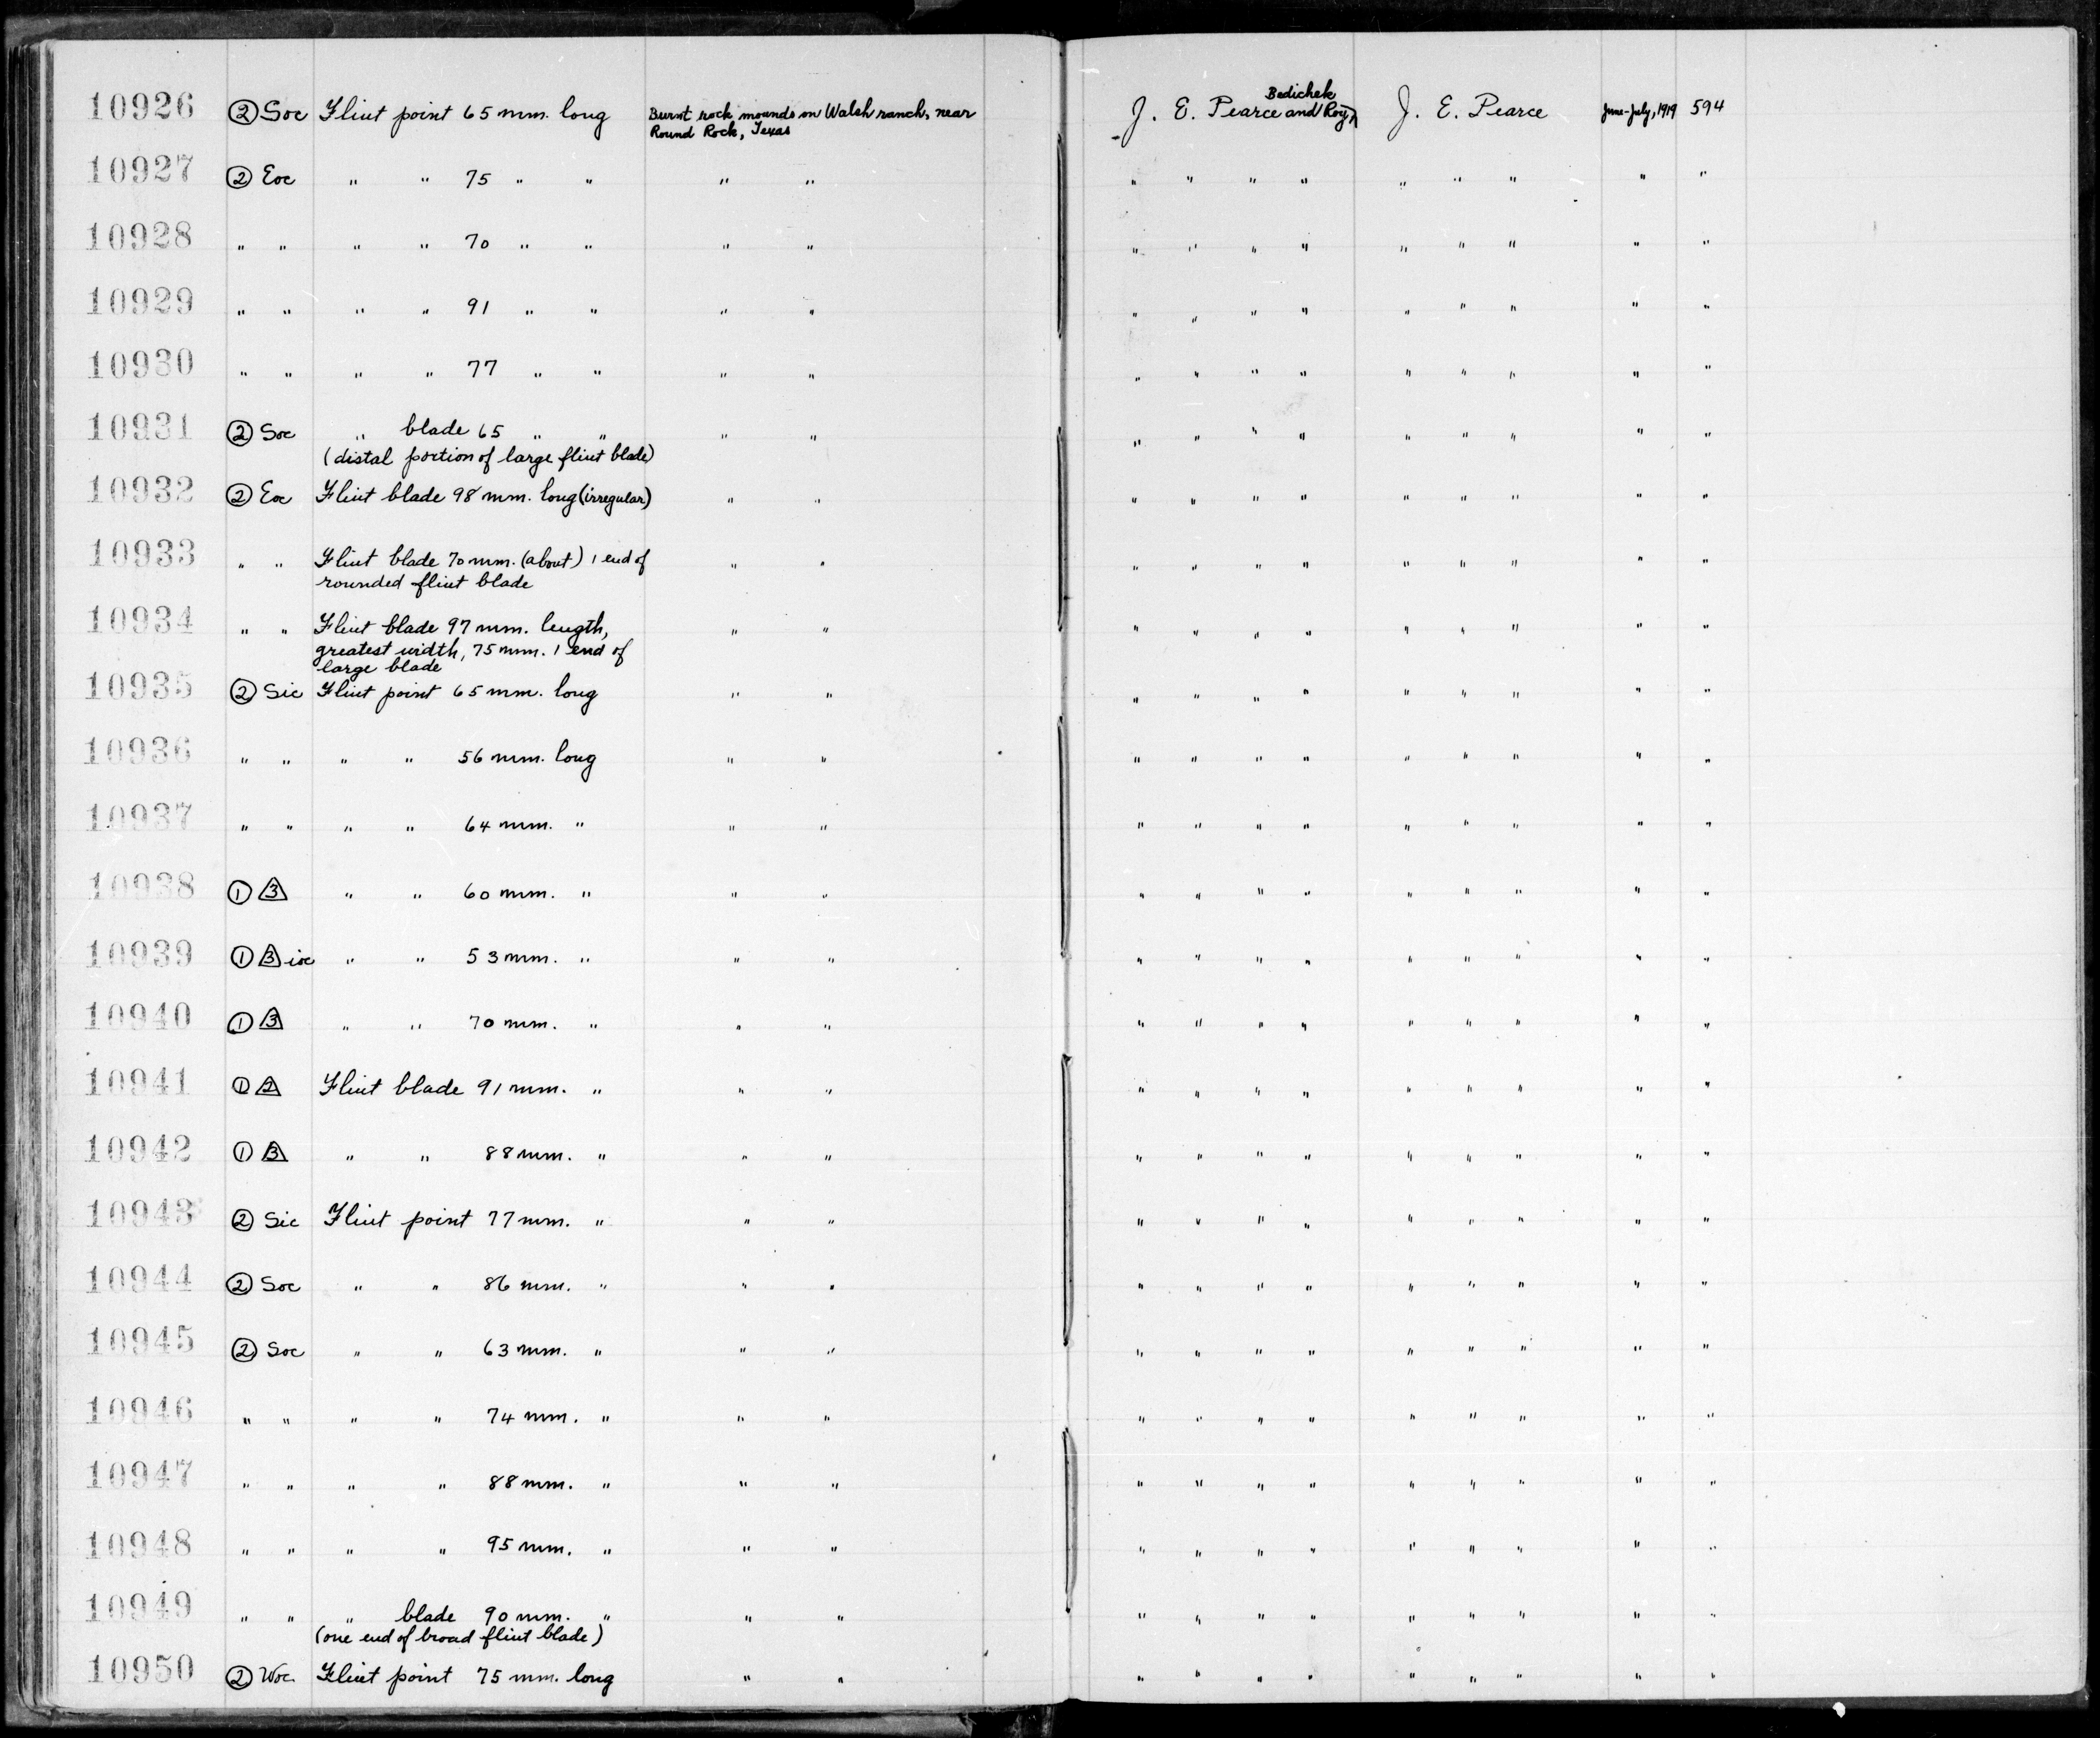 10926 ② Soc Flint point 65 mm. long Burnt rock mounds on Walsh ranch, near Round Rock, Texas J. E. Pearce and Roy Bedichek J. E. Pearce June-July, 1919 594
10927 ② Eoc " " 75 " " " " " " " " " " " " "
10928 " " " " 70 " " " " " " " " " " " " "
10929 " " " " 91 " " " " " " " " " " " " "
10930 " " " " 77 " " " " " " " " " " " " "
10931 ② Soc " blade 65 " " " " " " " " " " " " "
(distal portion of large flint blade)
10932 ② Eoc Flint blade 98 mm. long (irregular) " " " " " " " " " " "
10933 " " Flint blade 70 mm. (about) 1 end of " " " " " " " " " " "
rounded flint blade
10934 " " Flint blade 97 mm. length, " " " " " " " " " " "
greatest width, 75 mm. 1 end of
large blade
10935 ② Sic Flint point 65 mm. long " " " " " " " " " " "
10936 " " " " 56 mm. long " " " " " " " " " " "
10937 " " " " 64 mm. " " " " " " " " " " " "
10938 ① △3 " " 60 mm. " " " " " " " " " " " "
10939 ① △3 ioc " " 53 mm. " " " " " " " " " " " "
10940 ① △3 " " 70 mm. " " " " " " " " " " " "
10941 ① △2 Flint blade 91 mm. " " " " " " " " " " " "
10942 ① △3 " " 88 mm. " " " " " " " " " " " "
10943 ② Sic Flint point 77 mm. " " " " " " " " " " " "
10944 ② Soc " " 86 mm. " " " " " " " " " " " "
10945 ② Soc " " 63 mm. " " " " " " " " " " " "
10946 " " " " 74 mm. " " " " " " " " " " " "
10947 " " " " 88 mm. " " " " " " " " " " " "
10948 " " " " 95 mm. " " " " " " " " " " " "
10949 " " " blade 90 mm. " " " " " " " " " " " "
(one end of broad flint blade)
10950 ② Woc Flint point 75 mm. long " " " " " " " " " " "